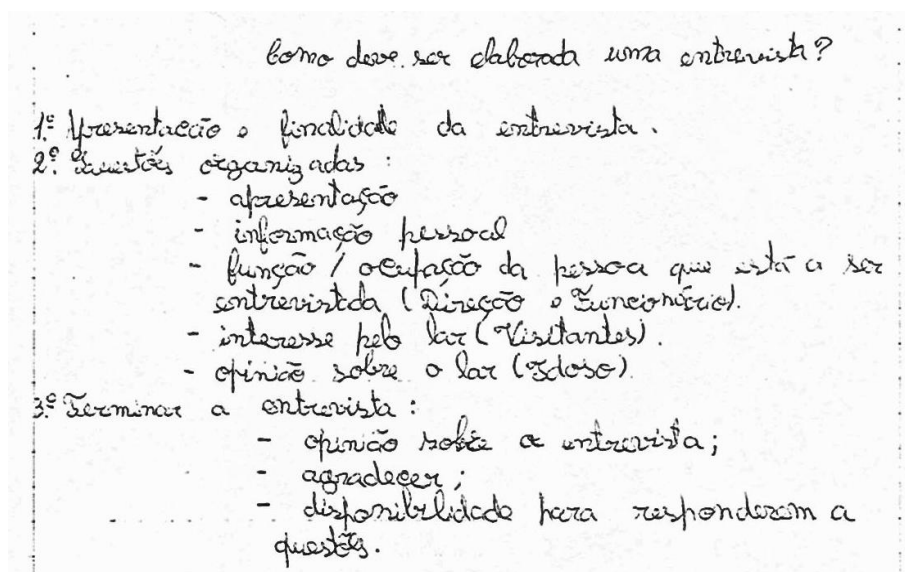 Como deve ser elaborada uma entrevista?
1.º Apresentação e finalidade da entrevista.
2.º Questões organizadas:
- apresentação
- informação pessoal
- função / ocupação da pessoa que está a ser
entrevistada (Direcção e Funcionário).
- interesse pelo lar (Visitantes).
- opinião sobre o lar (Idoso).
3.º Terminar a entrevista:
- opinião sobre a entrevista;
- agradecer;
- disponibilidade para responderem a
questões.